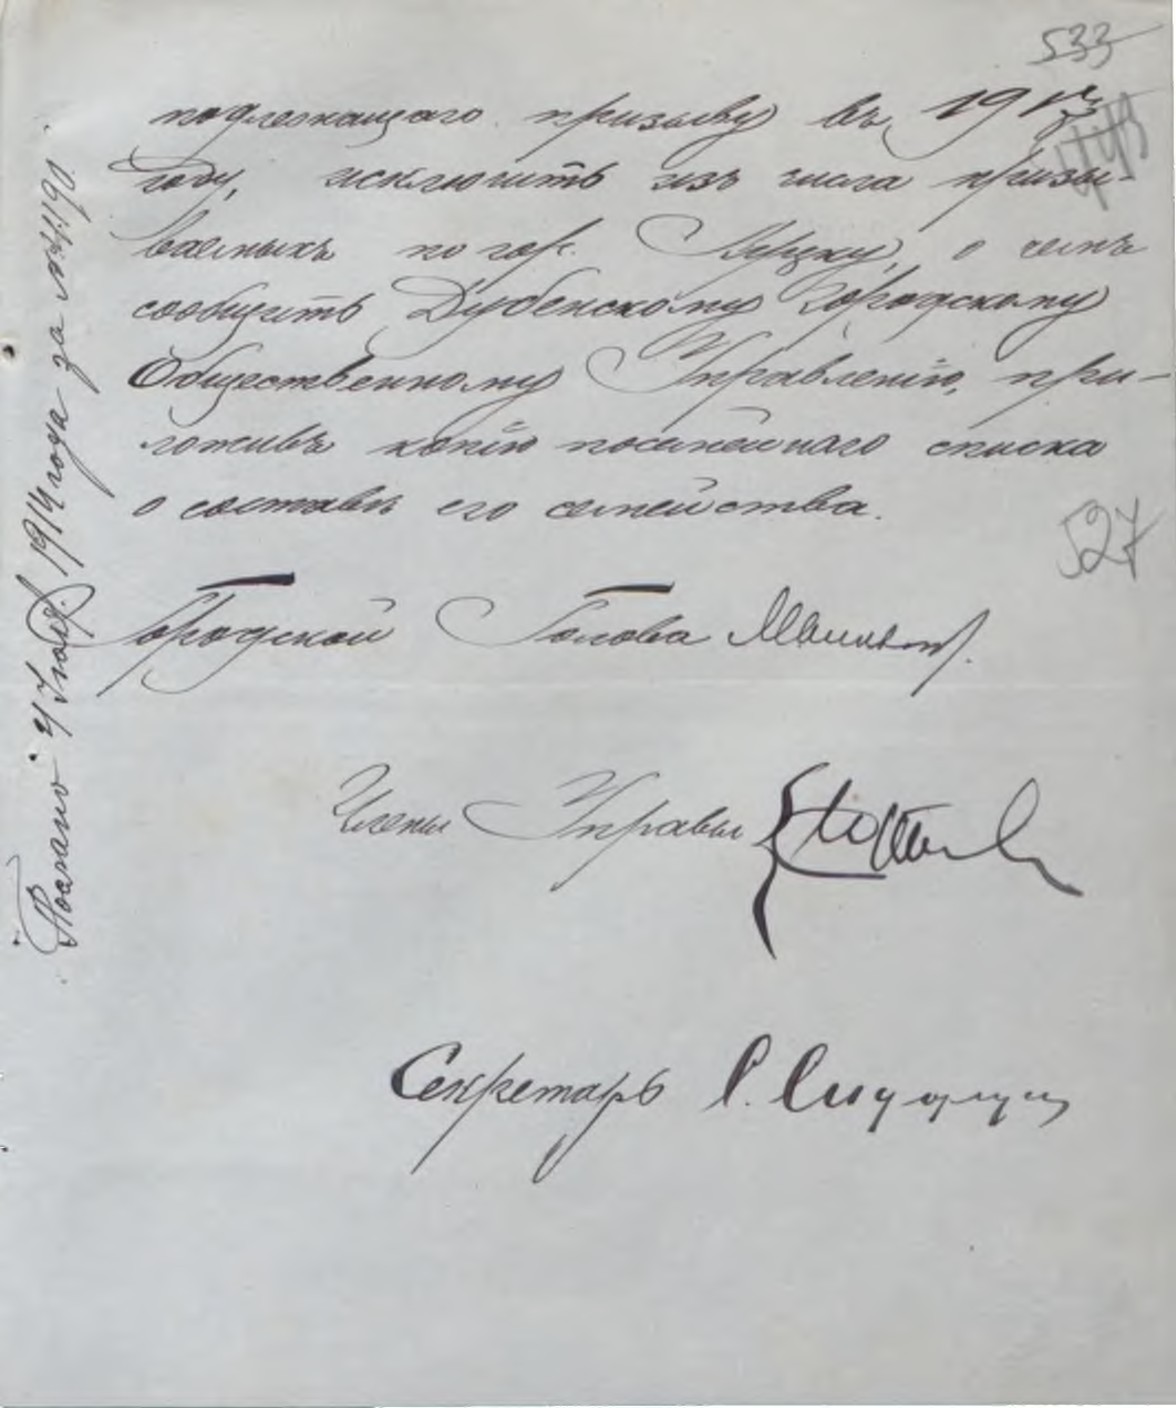 533
подлежащаго призыву въ 19
году, исключить изъ числа призы-
ваемыхъ по гор. Луцку, о чемъ
сообщить Дубенскому Городскому
Общественному Управленію, при-
ложивъ копію посемейнаго списка
о составѣ его семейства.
527
Городской Голова
Члены Управы
Секретарь
1914 года за №4190.